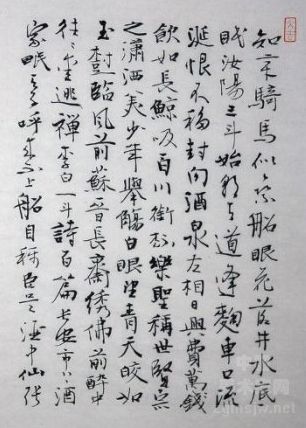 知章騎馬似乘船眼花落井水底
眠汝陽三斗始朝天道逢麴車口流
涎恨不移封向酒泉左相日興費萬錢
飲如長鯨吸百川銜杯樂聖稱世賢宗
之瀟洒美少年舉觴白眼望青天皎如
玉樹臨風前蘇晉長齋綉佛前醉中
往往愛逃禪李白一斗詩百篇長安市上酒
家眠天子呼來不上船自稱臣是酒中仙張